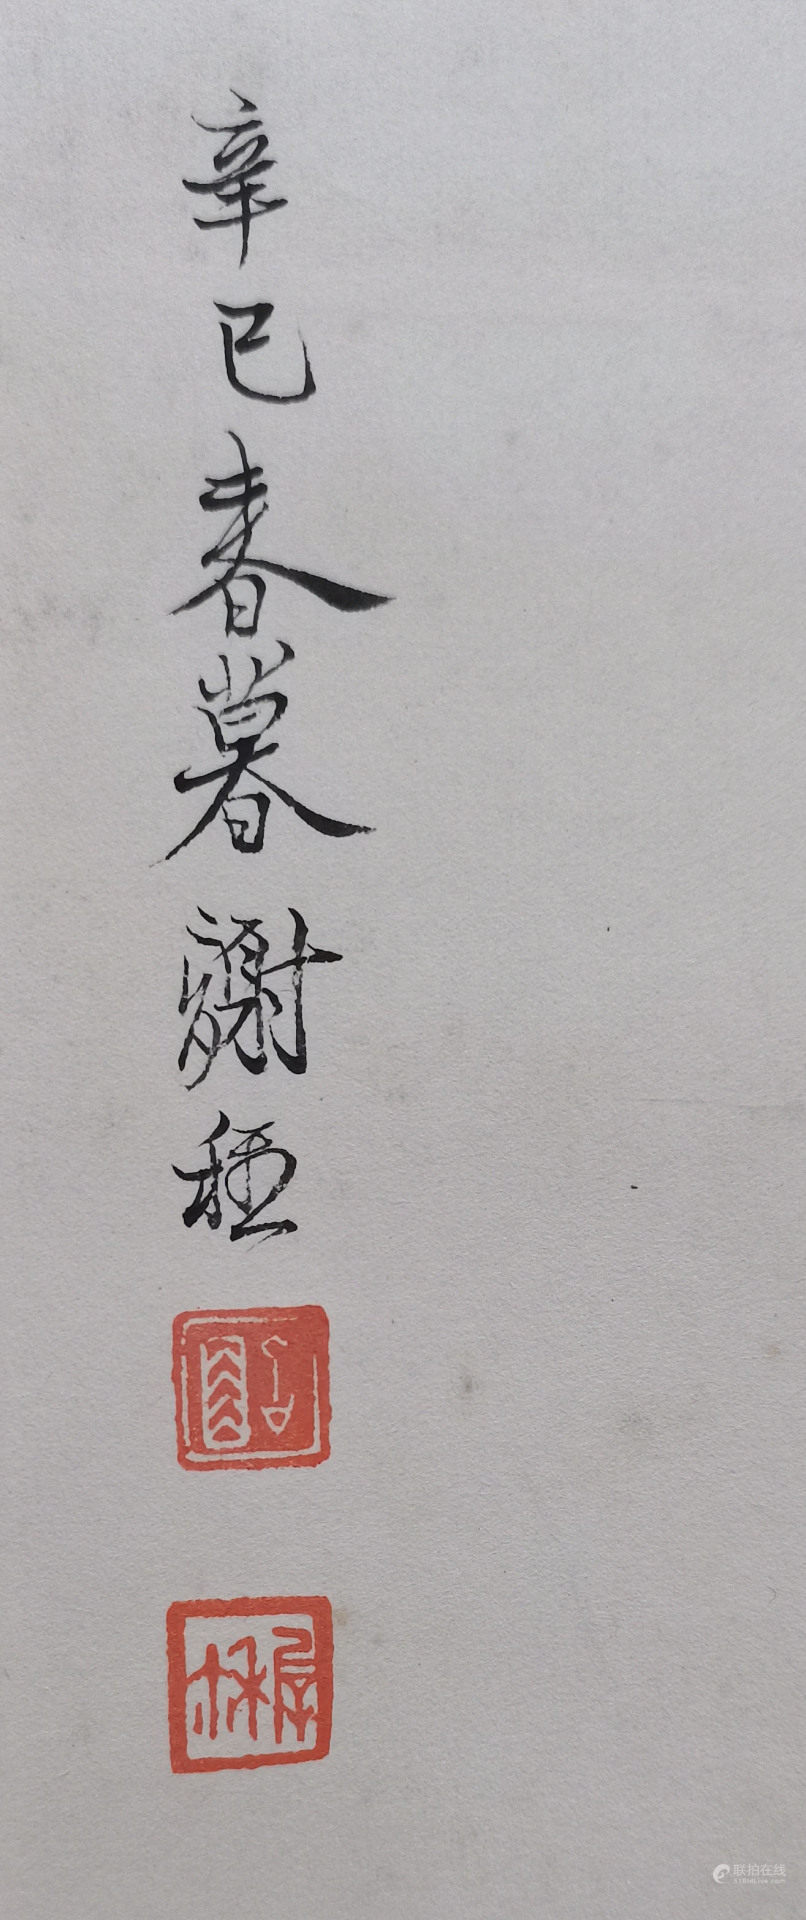 辛巳春暮謝稚
联拍在线
51BidLive.com